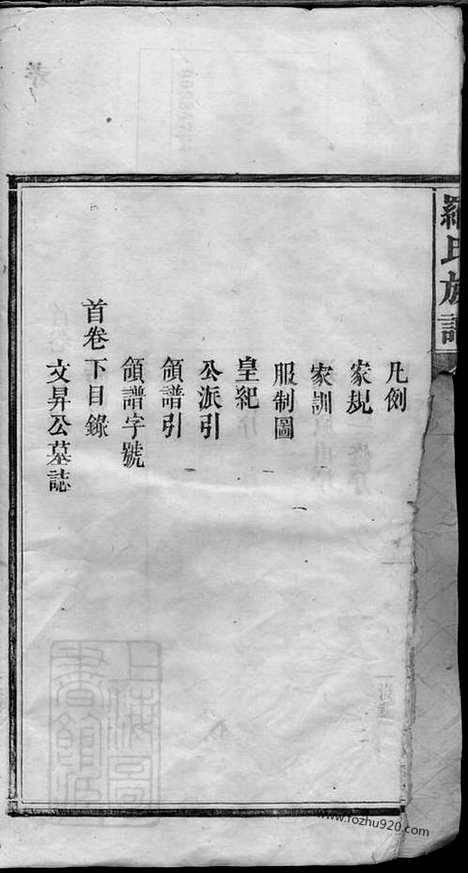 羅氏族譜
凡例
家規
家訓
服制圖
皇紀
公派引
領譜引
領譜字號
首卷下目錄
文昇公墓誌
上海圖書館藏
www.fozhu920.com